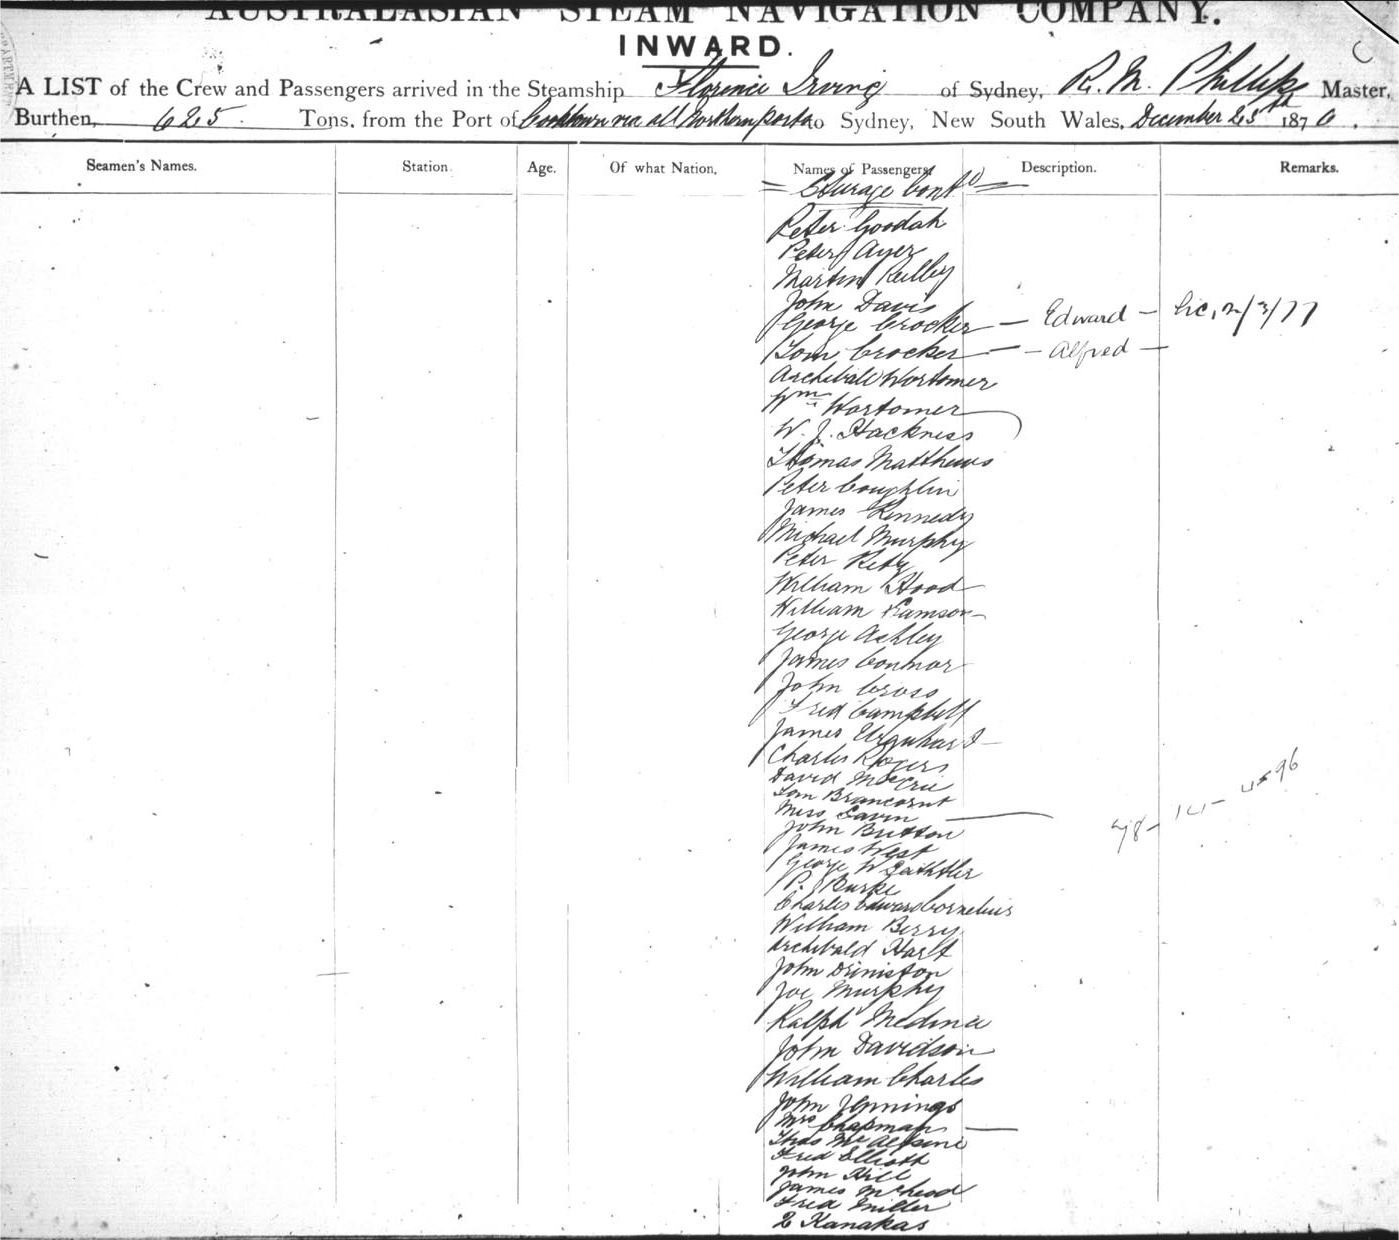 AUSTRALASIAN STEAM NAVIGATION COMPANY.
INWARD.
A LIST of the Crew and Passengers arrived in the Steamship Florence Irving of Sydney, R. M. Phillips Master,
Burthen, 625 Tons, from the Port of Cooktown via all Northern ports to Sydney, New South Wales, December 23rd 1876.
Seamen's Names. Station. Age. Of what Nation, Names of Passengers Description. Remarks.
Steerage Contd
Peter Goodah
Peter Ayer
Martin Reilly
John Davis
George Crocker — Edward — 2/3/77
Tom Crocker — Alfred —
Archibald Wortomer
Wm Wortomer
W. J. Hackness
Thomas Matthews
Peter Coughlin
James Kennedy
Michael Murphy
Peter
William Hood
William Ramson
George Ashley
James Connor
John Cross
Fred Campbell
James Urquhart
Charles Rogers
David McCrie
Tom
Miss Gavin
John Button
James West
George W
P. Burke
Charles Edward Cornelius
William Berry
Archibald Hart
John Driniston
Joe Murphy
Ralph Medina
John Davidson
William Charles
John Jennings
Mrs Chapman
Thos McAlpine
Fred Elliott
John Hill
James McLeod
Fred Miller
2 Kanakas